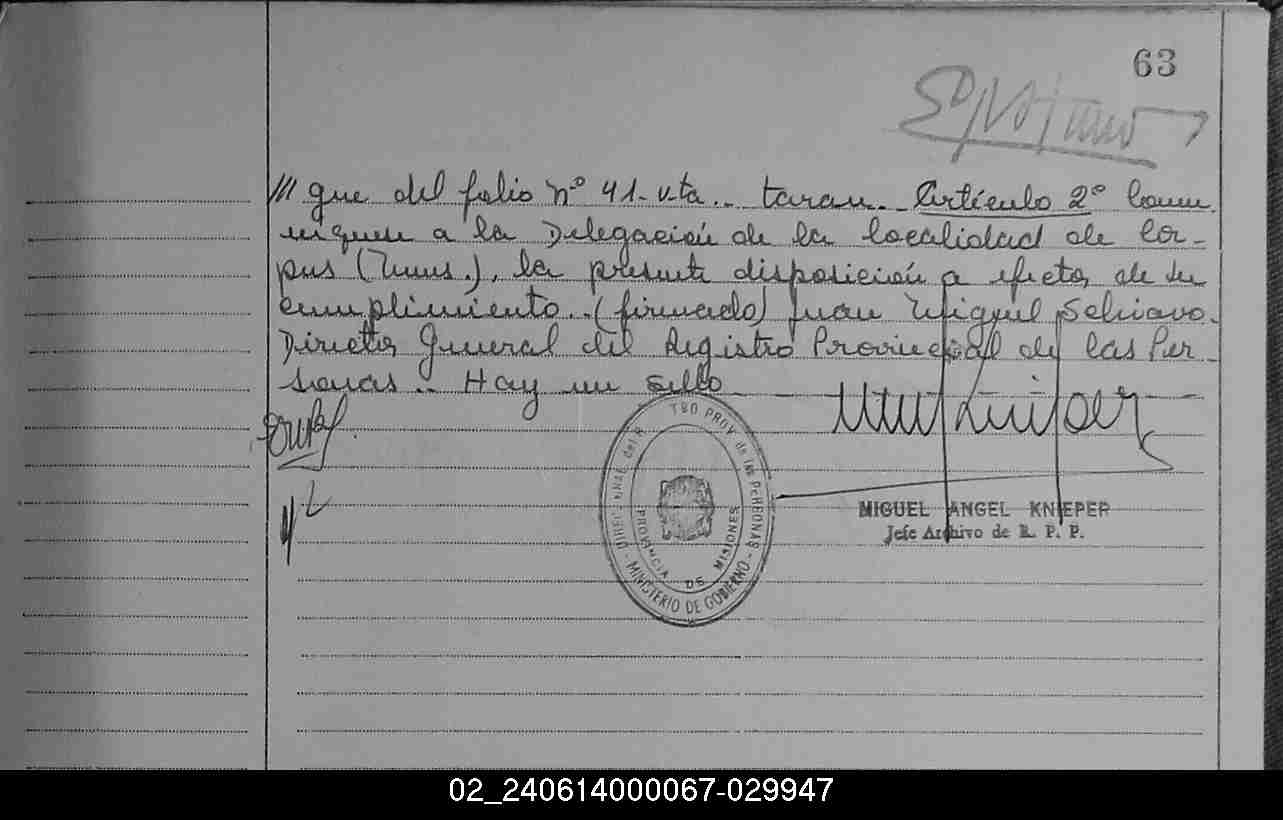 63
/// que del folio Nº 41-vta.. taran.. Artículo 2º Comu
niquese a la Delegación de la localidad de Cor-
pus (Mnes.), la presente disposición a efectos de su
cumplimiento..(firmado) Juan Miguel Schiavo.
Director General del Registro Provincial de las Per-
sonas.. Hay un sello
DIRECC. GRAL. del R. TRO PROV. de las PERSONAS
PROVINCIA DE MISIONES
- MINISTERIO DE GOBIERNO -
MIGUEL ANGEL KNIEPER
Jefe Archivo de R. P. P.
02_240614000067-029947